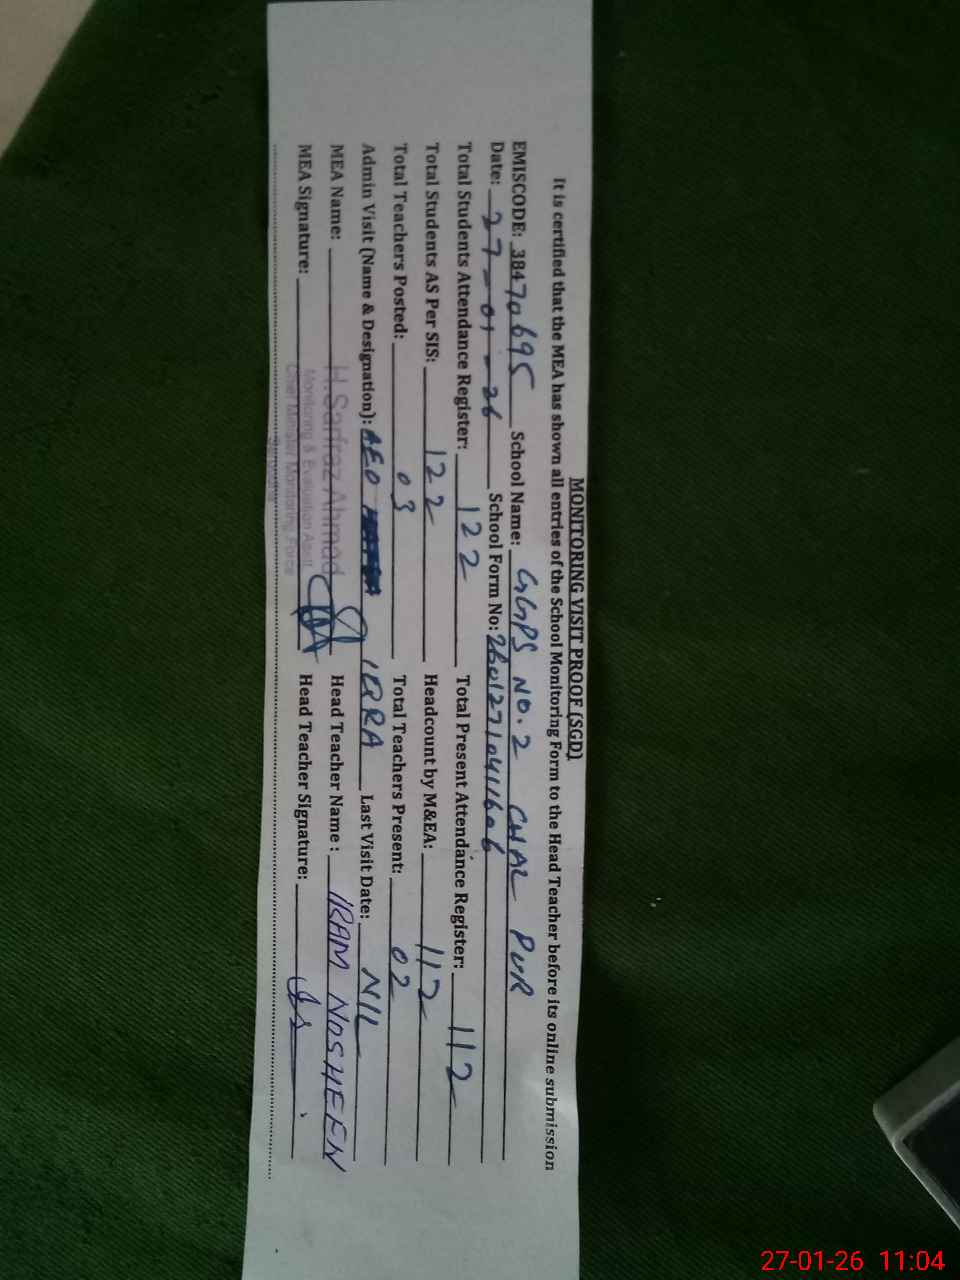 MONITORING VISIT PROOF (SGD)
It is certified that the MEA has shown all entries of the School Monitoring Form to the Head Teacher before its online submission
EMISCODE: 38470695 School Name: GGPS NO. 2 CHAL PUR
Date: 27-01-26 School Form No: 26012710411606
Total Students Attendance Register: 122 Total Present Attendance Register: 112
Total Students AS Per SIS: 122 Headcount by M&EA: 112
Total Teachers Posted: 03 Total Teachers Present: 02
Admin Visit (Name & Designation): AEO IQRA Last Visit Date: NIL
MEA Name: H.Sarfraz Ahmad Head Teacher Name : IRAM NOSHEEN
MEA Signature: Head Teacher Signature:
Monitoring & Evaluation Asstt
Chief Minister Monitoring Force
27-01-26 11:04